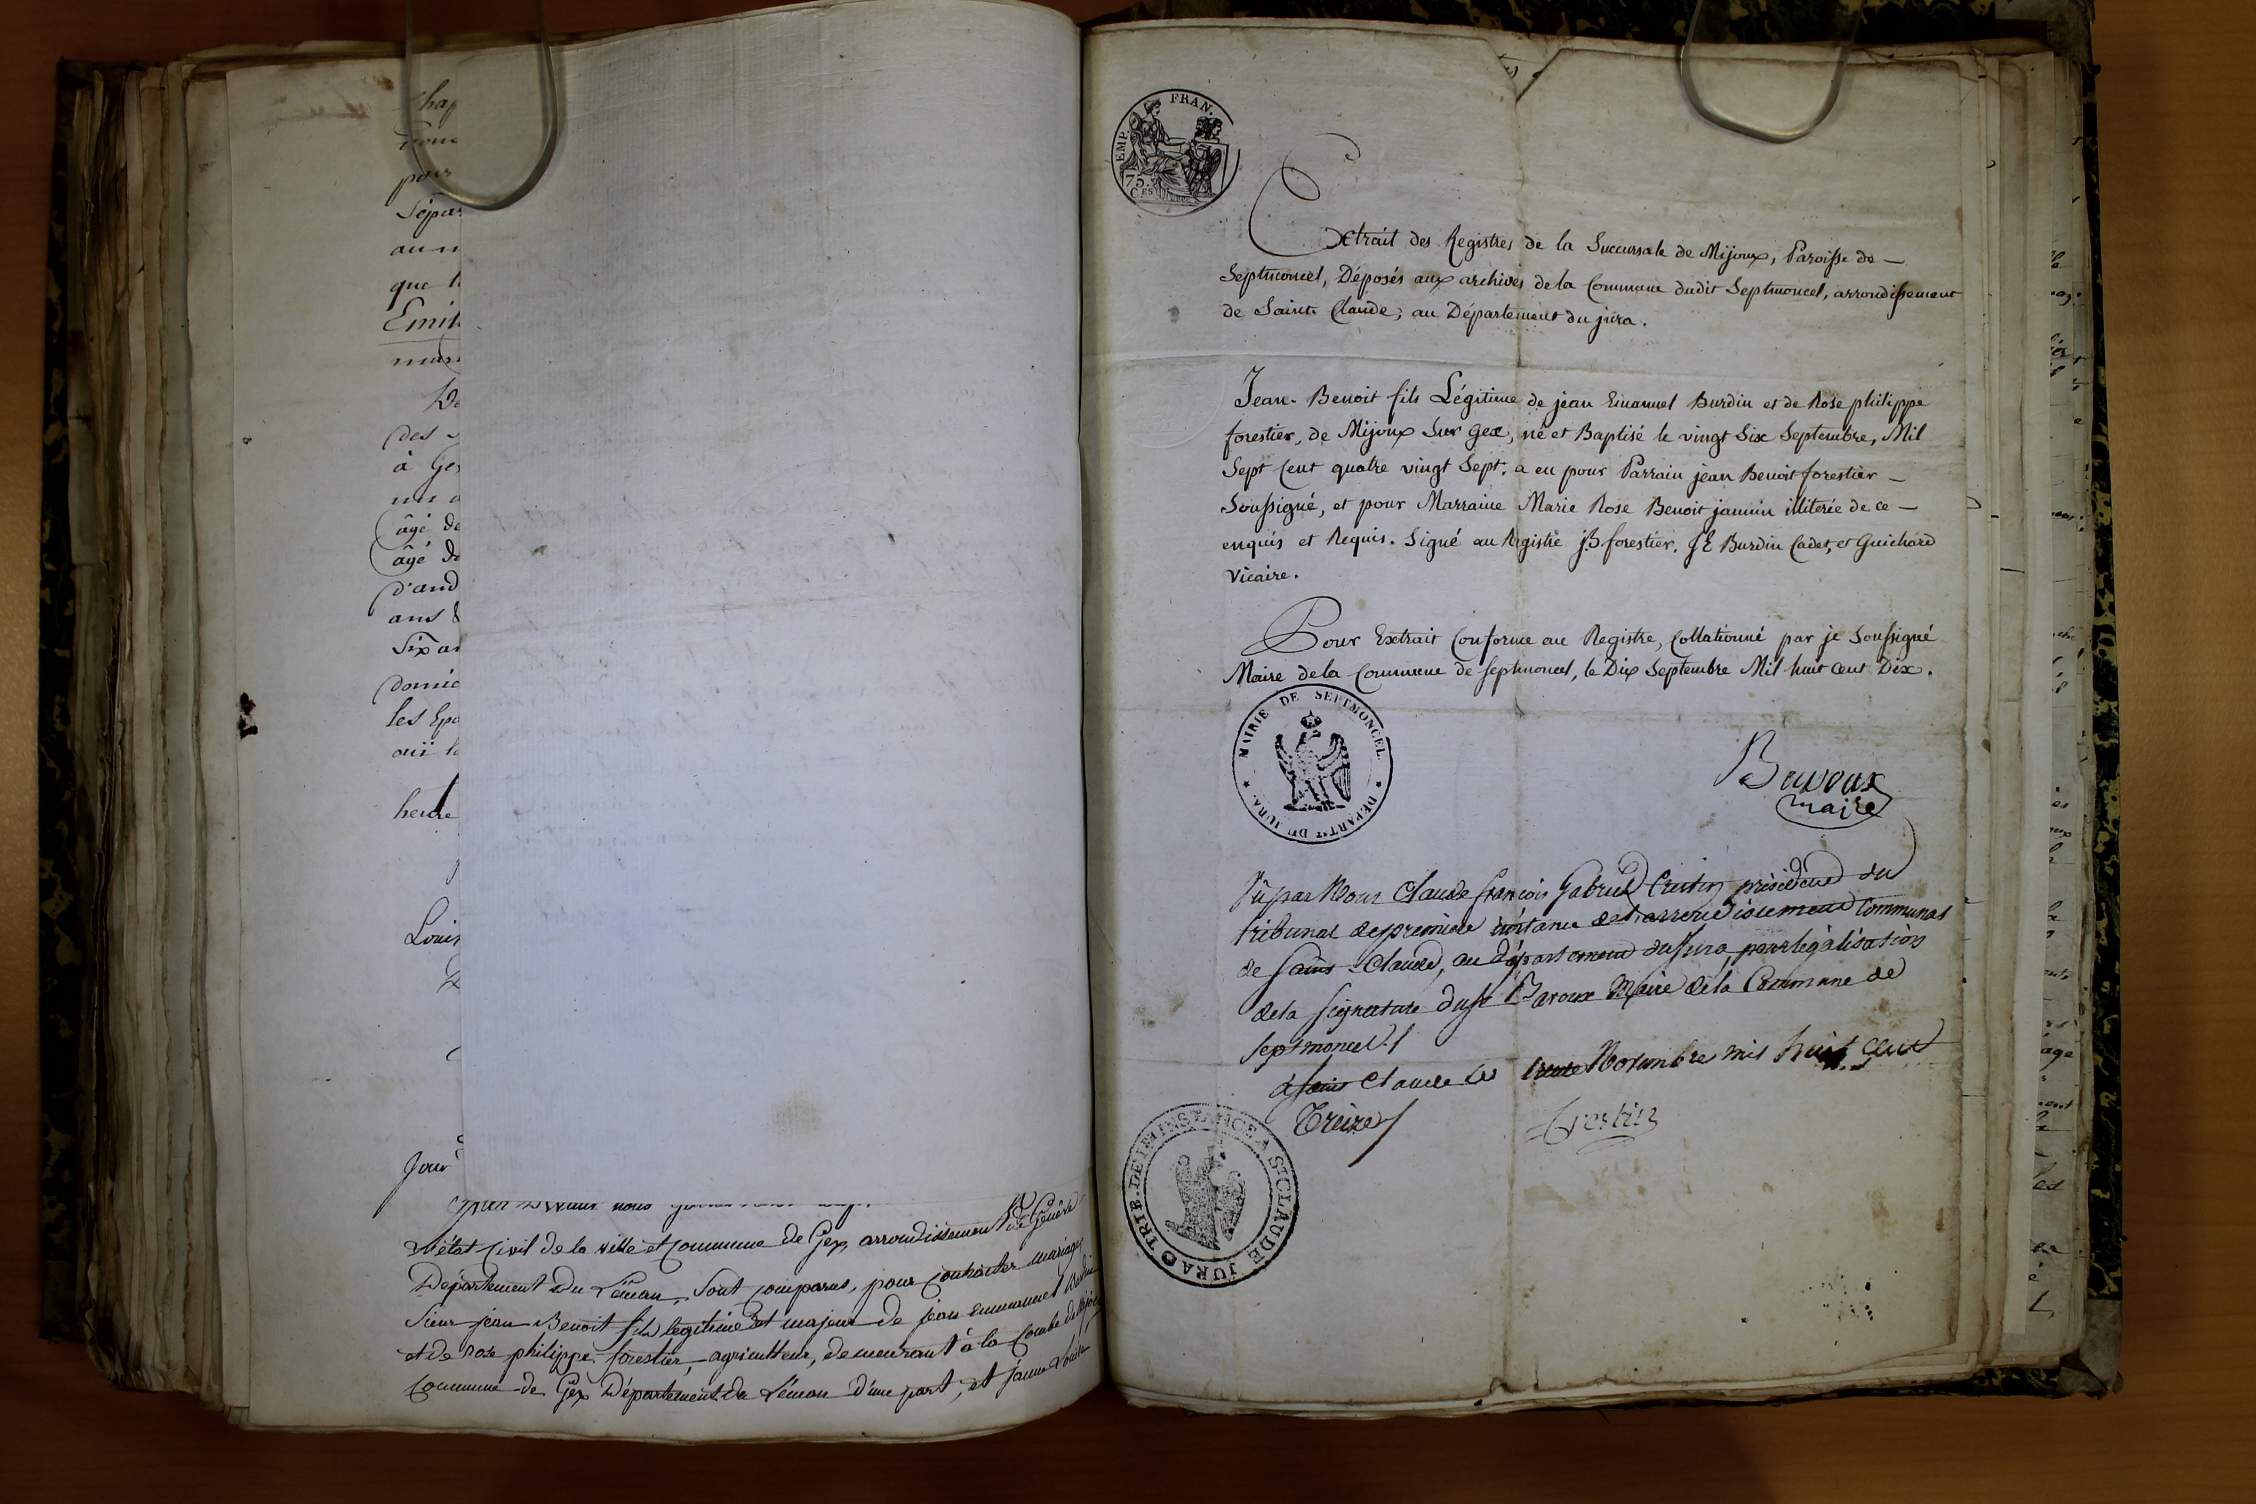 pour
Sépar
au n
que l
Emil
mari
De
des
à Gex
un a
âgé de
âgé de
d'and
ans &
Six an
domic
les Epo
ouï le
heure
Louis
Jour
l'état Civil de la ville et Commune de Gex, arrondissement de Genève
Département du Léman, Sont Comparus, pour Contracter mariage
Sieur jean Benoit fils légitime et majeur de jean Emmanuel Burdin
et de Rose philippe forestier, agriculteur, demeurant à la Combe de Mijoux
Commune de Gex Département du Léman d'une part, et jeanne Louise
EMP. FRAN.
75.
CES
Extrait des Registres de la Succursale de Mijoux, Paroisse de
Septmoncel, Déposés aux archives de la Commune dudit Septmoncel, arrondissement
de Saint Claude, au Département du jura.
Jean-Benoit fils Légitime de jean Emanuel Burdin et de Rose philippe
forestier, de Mijoux Sur Gex, né et Baptisé le vingt Six Septembre, Mil
Sept Cent quatre vingt Sept. a eu pour Parrain jean Benoit forestier
Soussigné, et pour Marraine Marie Rose Benoit jannin illiterée de ce
enquis et Requis. Signé au Registre J.B. forestier. J E Burdin Cadet, et Guichard
Vicaire.
Pour Extrait Conforme au Registre, Collationné par je Soussigné
Maire de la Commune de Septmoncel, le Dix Septembre Mil huit Cent Dix.
MAIRIE DE SEPTMONCEL
DÉPARTT DU JURA
maire
Vû par Nous Claude françois Gabriel Crestin président du
tribunal de première instance de l'arrondissement Communal
de Saint-Claude, au département du Jura, pour légalisation
de la signature du Sr Bavoux Maire de la Commune de
Septmoncel
à Saint Claude le trente Novembre mil huit cent
treize
Crestin
TRIB. DE 1ERE INSTANCE A ST CLAUDE JURA